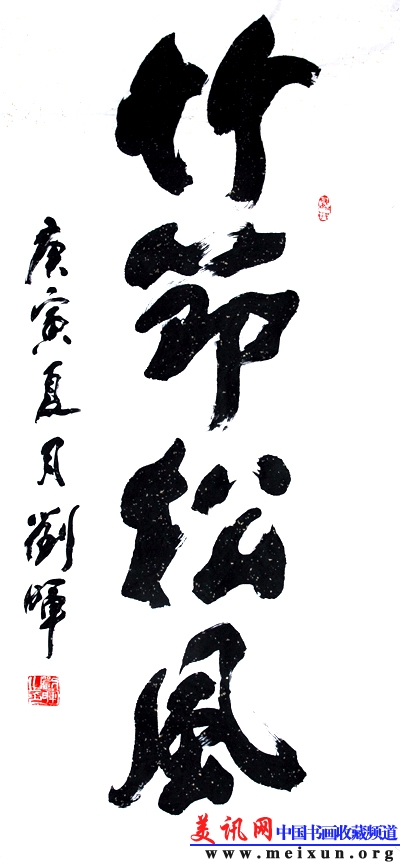 竹節松風
庚寅夏月劉暉
美讯网 中国书画收藏频道
www.meixun.org